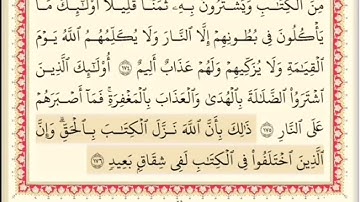 مِنَ الْكِتَابِ وَيَشْتَرُونَ بِهِ ثَمَنًا قَلِيلًا أُولَٰئِكَ مَا
يَأْكُلُونَ فِي بُطُونِهِمْ إِلَّا النَّارَ وَلَا يُكَلِّمُهُمُ اللَّهُ يَوْمَ
الْقِيَامَةِ وَلَا يُزَكِّيهِمْ وَلَهُمْ عَذَابٌ أَلِيمٌ ١٧٤ أُولَٰئِكَ الَّذِينَ
اشْتَرَوُا الضَّلَالَةَ بِالْهُدَىٰ وَالْعَذَابَ بِالْمَغْفِرَةِ ۚ فَمَا أَصْبَرَهُمْ
عَلَى النَّارِ ١٧٥ ذَٰلِكَ بِأَنَّ اللَّهَ نَزَّلَ الْكِتَابَ بِالْحَقِّ ۗ وَإِنَّ
الَّذِينَ اخْتَلَفُوا فِي الْكِتَابِ لَفِي شِقَاقٍ بَعِيدٍ ١٧٦